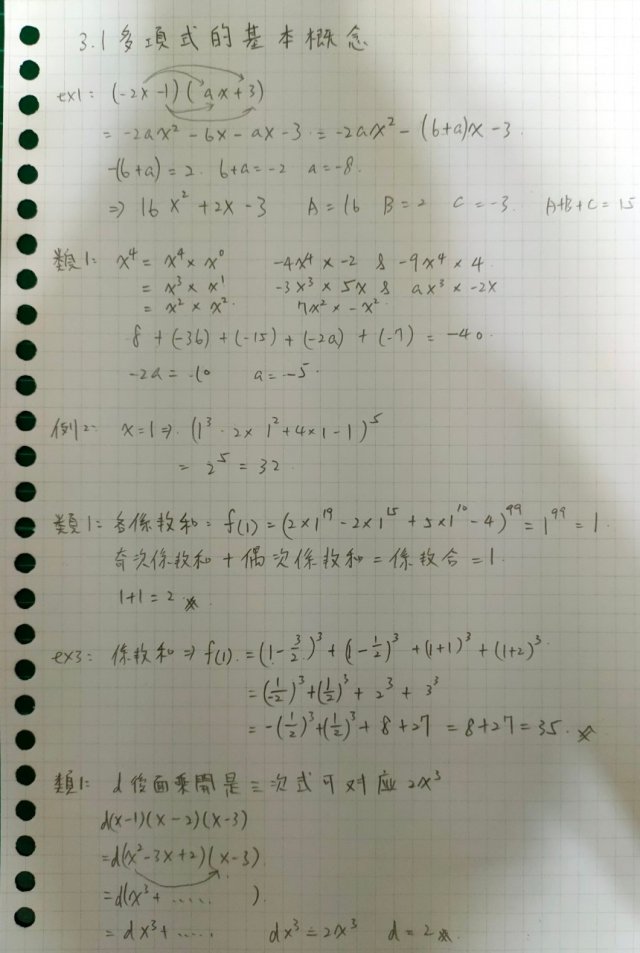 3.1 多項式的基本概念
ex1: (-2x-1)(ax+3)
= -2ax² - 6x - ax - 3 = -2ax² - (6+a)x - 3.
-(6+a) = 2. 6+a = -2 a = -8.
⇒ 16x² + 2x - 3 A = 16 B = 2 C = -3. A+B+C = 15
類1: x⁴ = x⁴ × x⁰ -4x⁴ × -2 & -9x⁴ × 4
= x³ × x¹ -3x³ × 5x & ax³ × -2x
= x² × x² 7x² × -x²
8 + (-36) + (-15) + (-2a) + (-7) = -40
-2a = 10 a = -5.
例2: x=1 ⇒ (1³ - 2×1² + 4×1 - 1)⁵
= 2⁵ = 32
類1: 各係數和 = f(1) = (2×1¹⁹ - 2×1¹⁵ + 5×1¹⁰ - 4)⁹⁹ = 1⁹⁹ = 1.
奇次係數和 + 偶次係數和 = 係數合 = 1.
1+1 = 2 ※
ex3: 係數和 ⇒ f(1) = (1-3/2)³ + (1-1/2)³ + (1+1)³ + (1+2)³
= (1/-2)³ + (1/2)³ + 2³ + 3³
= -(1/2)³ + (1/2)³ + 8 + 27 = 8+27 = 35. ※
類1: d後面乘開是三次式可对应2x³
d(x-1)(x-2)(x-3)
= d(x²-3x+2)(x-3)
= d(x³ + ...... )
= dx³ + ..... dx³ = 2x³ d = 2 ※